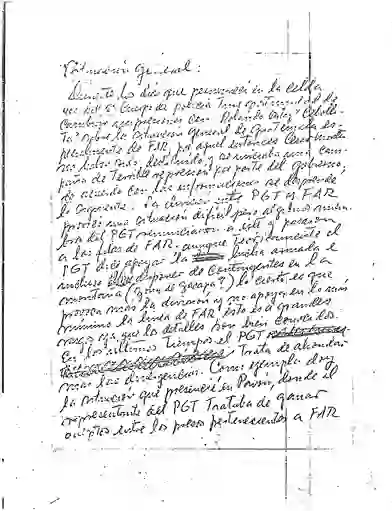 Situación General:
Durante los días que permanecí en la celda
del 2º Cuerpo de policía tuve oportunidad de
cambiar impresiones con Rolando
sobre la situación general de Guatemala es-
pecialmente de FAR, por aquel entonces
nos había sido declarado, y se iniciaba una cam-
paña de terrible represión por parte del gobierno,
de acuerdo con las informaciones se desprende
lo siguiente: La división entre PGT y FAR
provocó una situación difícil pero algunos miem-
bros del PGT renunciaron a este y pasaron
a las filas de FAR. aunque teóricamente el
PGT dice apoyar la lucha armada e
incluso disponer de contingentes en la
montaña (Zona de Zacapa?) lo cierto es que
provoca más la división y no apoya en lo más
mínimo la línea de FAR, esto es a grandes
rasgos ya que los detalles son bien conocidos.
En los últimos tiempos el PGT
trata de ahondar
más las divergencias. Como ejemplo doy
la situación que presencié en Pavón, donde el
representante del PGT trataba de ganar
adeptos entre los presos pertenecientes a FAR